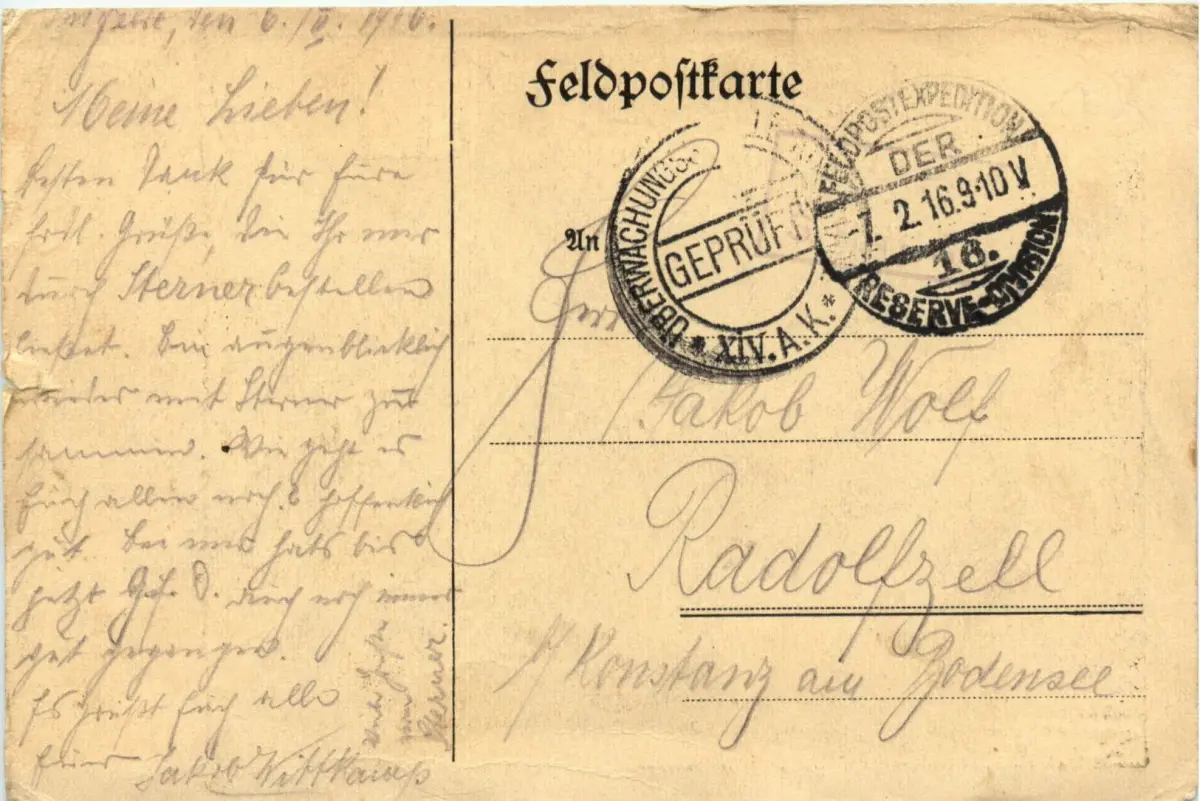 den 6./II. 1916.
Meine Lieben!
Besten Dank für Eure
frdl. Grüße, die Ihr mir
durch Sterner bestellen
ließet. Bin augenblicklich
wieder mit Sterner zu-
sammen. Wie geht es
Euch allen noch? Hoffentlich
gut. Bei mir hats bis
jetzt G. s. D. auch noch immer
gut gegangen.
Es grüßt Euch alle
Euer Jakob Wittkamp
Grüße
von
Sterner.
Feldpostkarte
ÜBERWACHUNGS
GEPRÜFT
* XIV. A. K. *
FELDPOSTEXPEDITION
DER
-7. 2. 16. 9-10 V.
RESERVE-DIVISION
An
Jakob Wolf
Radolfzell
b/ Konstanz am Bodensee